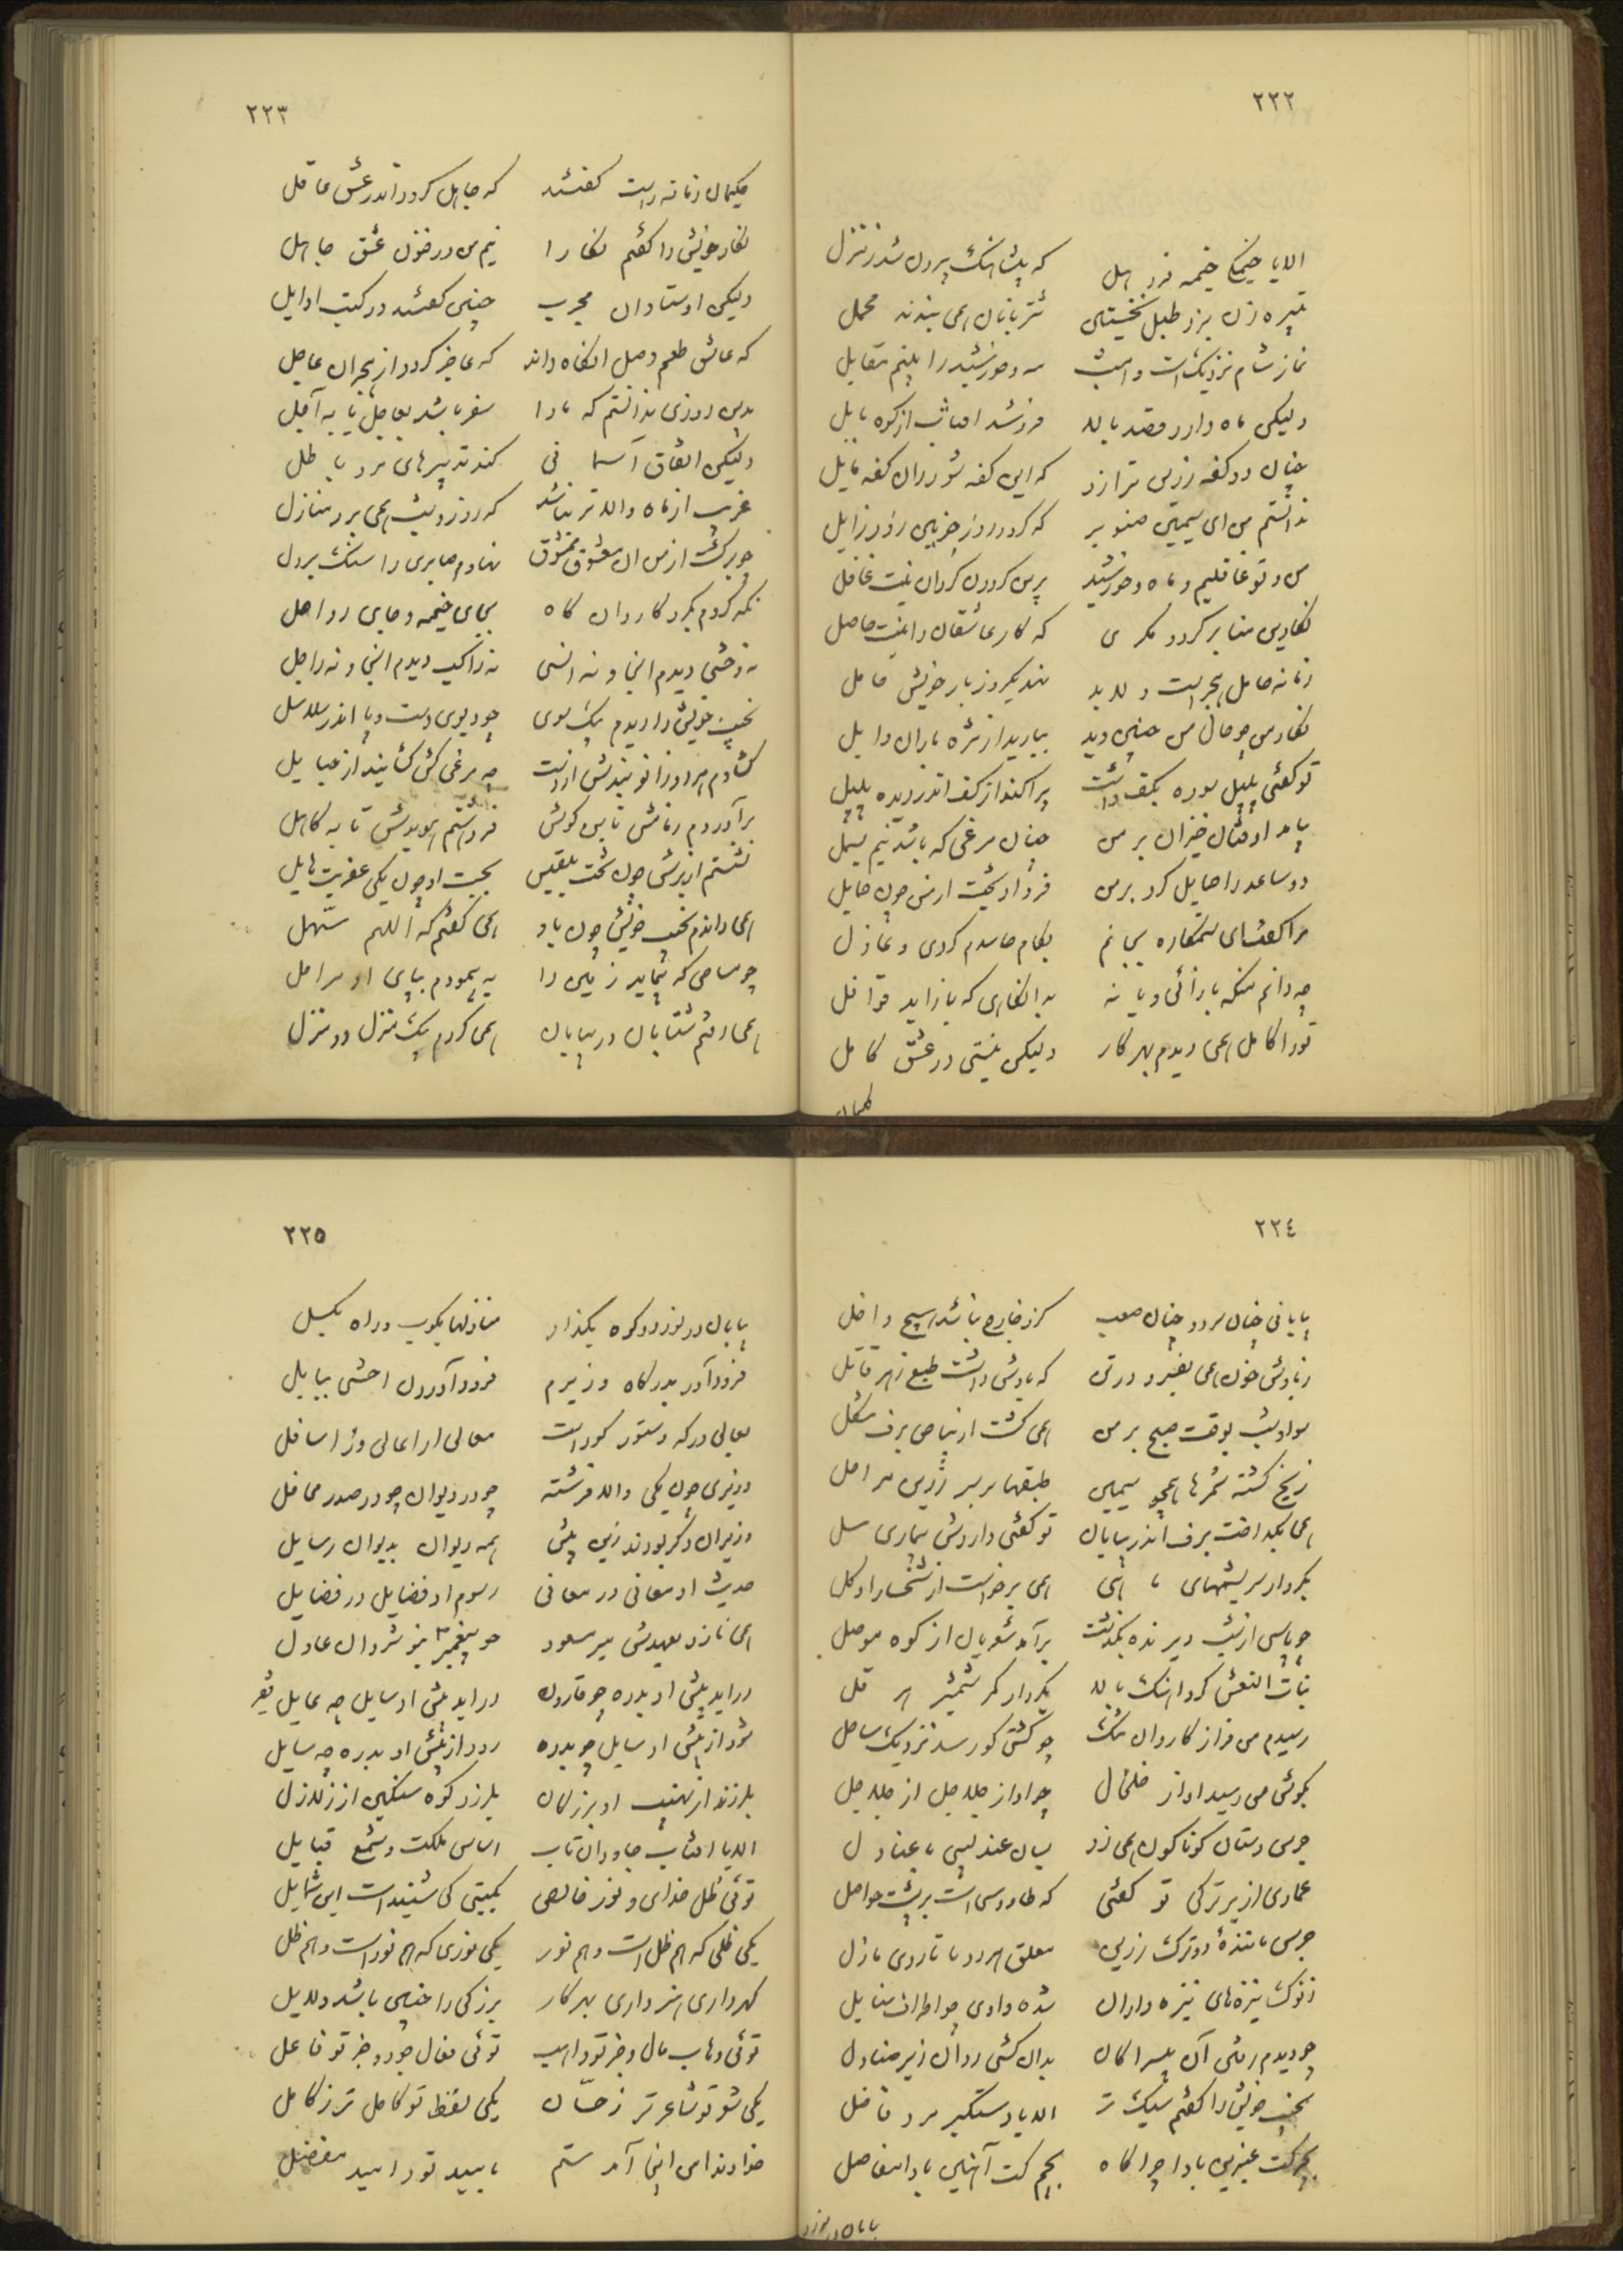 ٢٢٢
الا یا خیمگی خیمه فرو هل    که پیشاهنگ بیرون شد ز منزل
تبیره زن بزد طبل نخستین    شتربانان همی بندند محمل
نماز شام نزدیکست و امشب    مه و خورشید را بینم مقابل
ولیکن ماه دارد قصد بالا    فروشد افتاب از کوه بابل
چنان دو کفه زرین ترازو    که این کفه شود زان کفه مایل
ندانستم من ای سیمین صنوبر    که گردد روز چونین زود زایل
من و تو غافلیم و ماه و خورشید    برین گردون گردان نیست غافل
نگارین منا برگرد و مگری    که کار عاشقان را نیست حاصل
زمانه حامل هجرست و لابد    نهد یکروز بار خویش حامل
نگار من چو حال من چنین دید    ببارید از مژه باران وابل
تو گفتی پلپل سوده بکف داشت    پراکند از کف اندر دیده پلپل
بیامد اوفتان خیزان بر من    چنان مرغی که باشد نیم بسمل
دو ساعد را حمایل کرد بر من    فرو اویخت از من چون حمایل
مرا گفت ای ستمکاره بجانم    بکام حاسدم کردی و عاذل
چه دانم من که باز آئی و یا نه    بدانگاهی که باز اید قوافل
تو را کامل همی دیدم بهر کار    ولیکن نیستی در عشق کامل
٢٢٣
حکیمان زمانه راست گفتند    که جاهل گردد اندر عشق عاقل
نگار خویش را گفتم نگارا    نیم من در فنون عشق جاهل
ولیکن اوستادان مجرب    چنین گفتند در کتب اوایل
که عاشق طعم وصل انگاه داند    که عاجز گردد از هجران عاجل
بدین زودی ندانستم که ما را    سفر باشد بعاجل یا به آجل
ولیکن اتفاق آسمانی    کند تدبیرهای مرد باطل
غریب از ماه والاتر نباشد    که روز و شب همی برد منازل
چو برگشت از من ان معشوق ممشوق    نهادم صابری را سنگ بر دل
نگه کردم بگرد کاروان گاه    بجای خیمه و جای رواحل
نه وحشی دیدم انجا و نه انسی    نه راکب دیدم انجا و نه راجل
نجیب خویش را دیدم بیک سوی    چو دیوی دست و پا اندر سلاسل
گشادم هر دو زانو بندش از دست    چو مرغی کش گشایند از حبایل
برآوردم زمامش تا بن گوش    فرو هشتم هویدش تا به کاهل
نشستم از برش چون تخت بلقیس    بجست او چون یکی عفریت هایل
همی راندم نجیب خویش چون باد    همی گفتم که اللهم سهّل
چو مساحی که پیماید زمین را    به پیمودم بپای او مراحل
همی رفتم شتابان در بیابان    همی کردم بیک منزل دو منزل
٢٢٤
بیابانی چنان سرد و چنان صعب    کزو خارج نباشد هیچ داخل
ز بادش خون همی بفسرد در تن    که بادش داشت طبع زهر قاتل
سواد شب بوقت صبح بر من    همی گشت از بیاض برف مشکل
ز یخ گشته شمرها همچو سیمین    طبقها بر سر زرین مراحل
همی بگداخت برف اندر بیابان    تو گفتی داردش بیماری سل
بکردار سریشمهای ماهی    همی برخواست از شخسار او گل
چو پاسی از شب دیرنده بگذشت    برآمد شعریان از کوه موصل
بنات النعش کرد اهنگ بالا    بکردار کمر شمشیر هرقل
رسیدم من فراز کاروان تنگ    چو کشتی کو رسد نزدیک ساحل
بگوشم می رسید اواز خلخال    چو اواز جلاجل از جلاجل
جرس دستان گوناگون همی زد    بسان عندلیبی با عنادل
عماری از بر ترکی تو گفتی    که طاووسی است بر پشت حواصل
جرس مانندهٔ دو ترگ زرین    معلق هر دو تا زانوی بازل
ز نوک نیزه‌های نیزه داران    شده وادی چو اطراف سنابل
چو دیدم رفتن آن بیسراکان    بدان کشی روان زیر محامل
نجیب خویش را گفتم سبک تر    الا یا دستگیر مرد فاضل
بچر کت عنبرین بادا چراگاه    بچم کت آهنین بادا مفاصل
٢٢٥
بیابان در نورد و کوه بگذار    منازلها بکوب و راه بگسل
فرود آور بدرگاه وزیرم    فرود آوردن اعشی ببابل
بعالی درگه دستور کوراست    معالی از اعالی وز اسافل
وزیری چون یکی والا فرشته    چه در دیوان چه در صدر محافل
وزیران دگر بودند زین پیش    همه دیوان بدیوان رسایل
حدیث او معانی در معانی    رسوم او فضایل در فضایل
همی نازد بعهدش میر مسعود    چو پیغمبر بنوشروان عادل
درآید پیش او بدره چو قارون    درآید پیش او سایل چه عایل
شود از پیش او سایل چو بدره    رود از پیش او بدره چه سایل
بلرزند از نهیب او بزرگان    بلرزد کوه سنگین از زلازل
الا یا افتاب جاودان تاب    اساس ملکت و شمع قبایل
توئی ظل خدای و نور خالص    بگیتی کی شنیدست این شمایل
یکی ظلی که هم ظل است و هم نور    یکی نوری که هم نور است و هم ظل
گهرداری هنرداری بهرکار    بزرگی را چنین باشد دلایل
توئی وهاب مال و جز تو واهب    توئی فعال جود و جز تو فاعل
یکی شعر تو شاعرتر ز حسّان    یکی لفظ تو کاملتر ز کامل
خداوندا من اینجا آمدستم    بامید تو و امید مفضل